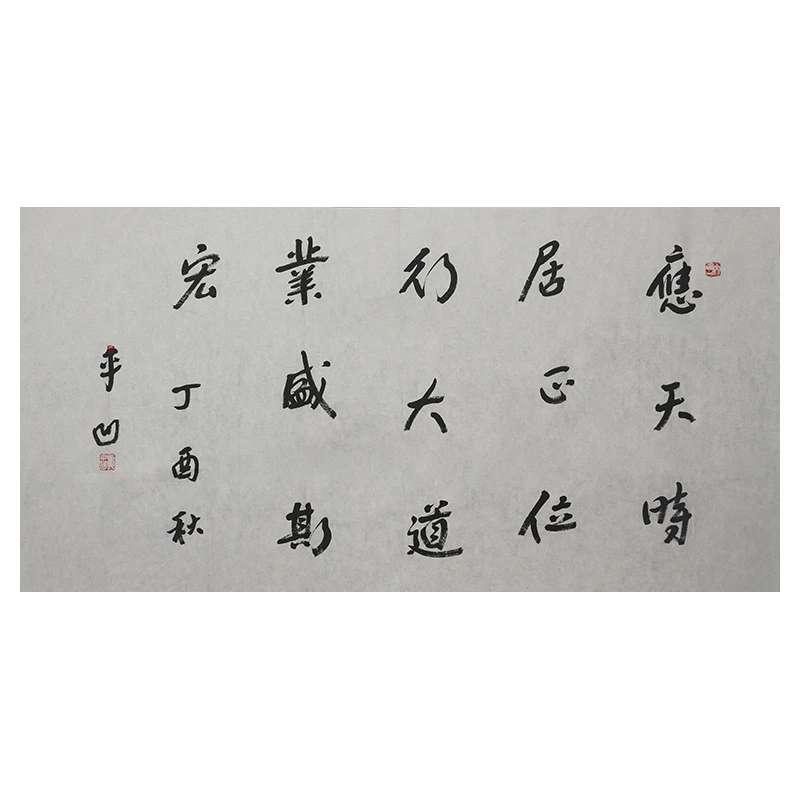 應天時
居正位
行大道
業盛斯
宏 丁酉秋
平凹